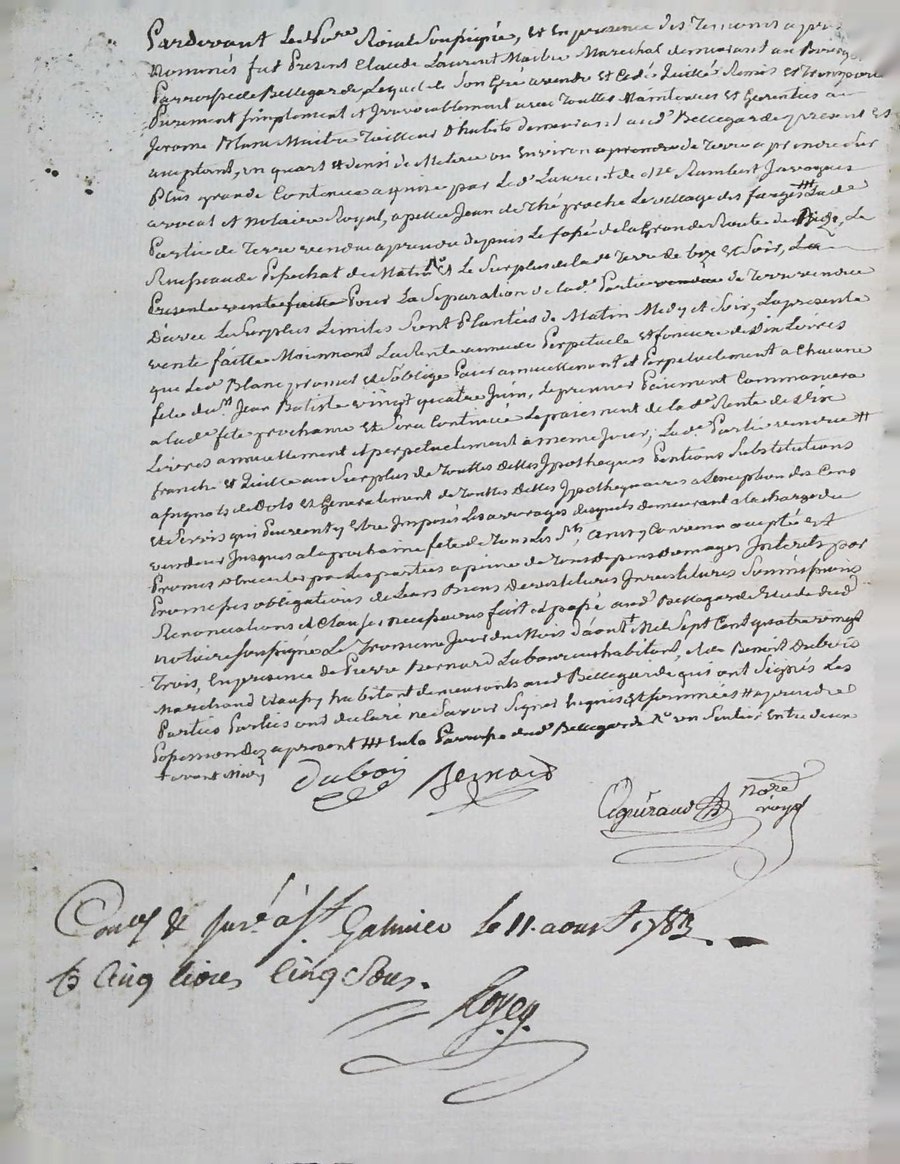 Pardevant Le No.re Roial Soussigné, et En presence des Temoins apres
Nommés fut Present Claude Laurent Maitre Marechal demeurant au Bourg
Parroisse de Bellegarde, Lequel de Son Gré a vendu et Cedé Quitté Remis et Transporté
Purement Simplement et Irrevocablement avec Touttes Maintenues et Garenties a
Jerome Blanc Maitre Tailleur d'habits demeurant aud. Bellegarde present et
acceptant, un quart et demi de Meterée ou Environ a prendre de Terre a prendre Sur
Plus grande Contenue acquise par Led. Laurent de Me Rambert
avocat et Notaire Royal, apellée Jean de Thé proche Le village des farges ⧺ Lad.e
Partie de Terre vendue a prendre depuis Le fossé de la Grande Route de Le
Ruisseau de de Matin et Le Surplus de lad.e Terre de bize et Soir, La
Presente vente faitte Pour La Separation de lad.e Partie vendue de Terre vendue
D'avec Le Surplus Limites Sont Plantées de Matin Midy et Soir, La presente
vente faitte Moiennant La Rente annuelle Perpetuelle et fonciere de Dix Livres
que Led. Blanc promet et S'oblige Paier annuellement et Perpetuellement a Chacune
fête de St. Jean Batiste vingt quatre Juin, Le premier Paiement Commencera
a lad.e fête prochaine et Sera Continué Le paiement de la d.e Rente de Dix
Livres annuellement et perpetuellement a même Jour, Lad.e Partie vendue #
franche et Quitte au Surplus de Touttes Dettes Ipotheques Pentions Substitutions
assignats de Dots et Generalement de Touttes Dettes Ipothequaires a L'exception des Cens
et Servis qui Peuvent y Etre Imposés Les arrerages desquels demeurant a la charge du
vendeur Jusques a la prochaine fête de Tous Les Sts, ainsy Convenu accepté et
Promis observer par Les parties a peine de Tous Depens Domages Interets par
Promesses obligations de Leurs Biens Devestitures Investitures Soumissions
Renonciations et Clauses necessaires fait et passé aud. Bellegarde Etude dud.
notaire Soussigné Le Troisieme Jour du Mois d'aoust Mil Sept Cent quatre vingt
Trois, En presence de Pierre Bernard Laboureur habitant, et de Benoit Dubois
Marchand habitant demeurants aud. Bellegarde qui ont Signés Les
Parties Parties ont declaré ne Savoir Signer Enquis et Sommées # a prendre
Possession Dez a present ⧺ En la Parroisse dud. Bellegarde un Sentier Entre deux
+ avant Midy
Dubois Bernard
no.re
royal
Con.lé & Jns.é à St. Galmier le 11. aoust 1783.
R. Cinq livres Cinq Sous.